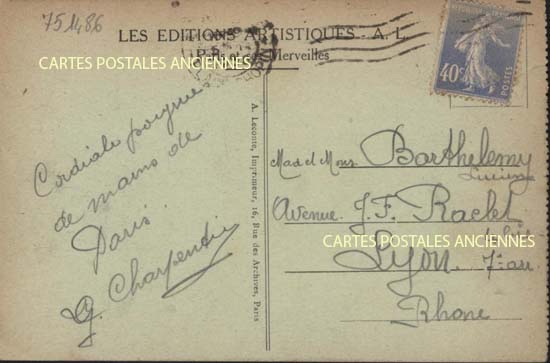 751486
LES EDITIONS ARTISTIQUES - A. L.
Paris et ses Merveilles
CARTES POSTALES ANCIENNES
40c
POSTES
Cordiale poignée
de mains de
Paris.
G. Charpentier
A. Leconte, Imprimeur, 16, Rue des Archives, Paris
Mad et Mons. Barthelemy
Lucien
Avenue J.F. Raclet
CARTES POSTALES ANCIENNES
Lyon. 7e arr
Rhone